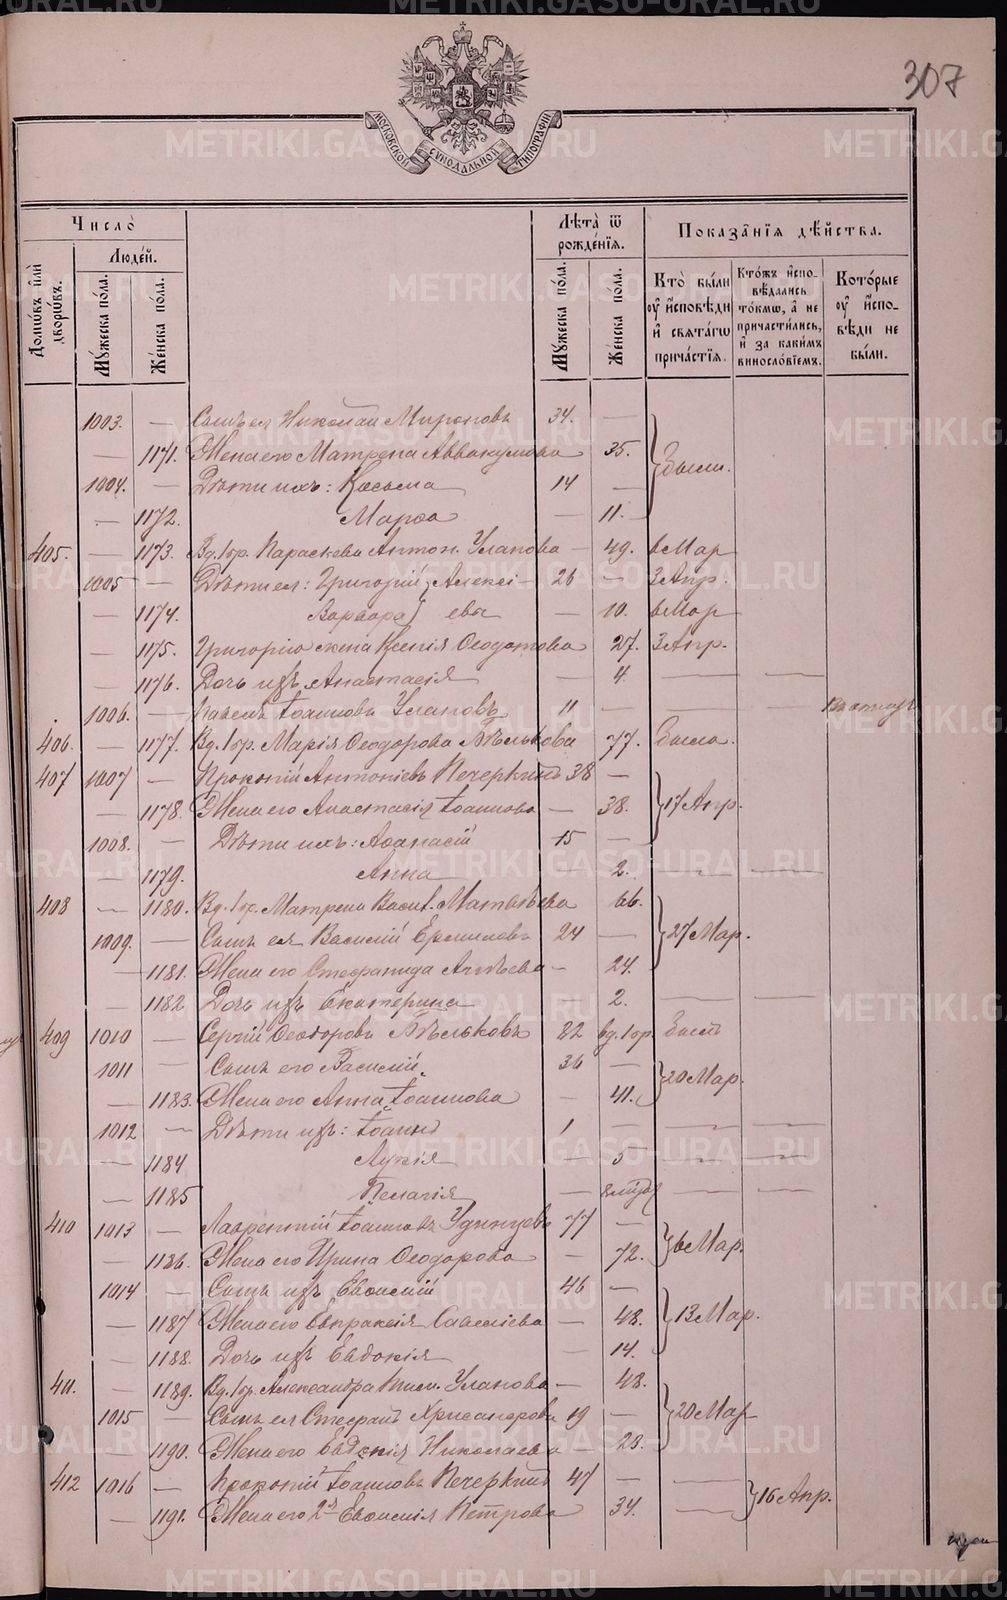 307
МОСКОВСКОЙ СѴНОДАЛЬНОЙ ТИПОГРАФІИ
Число̀
Лѣта̀ ѿ рожденїѧ.
Показанїѧ дѣйства.
Людей.
Домѡвъ и҆лѝ дворѡвъ.
Мꙋжеска пола.
Женска пола.
Мꙋжеска пола.
Женска пола.
Кто̀ были ᲂу҆ и҆сповѣди и҆ свѧтагѡ причастїѧ.
Ктожъ и҆сповѣдались токмѡ, а҆ не причастились, и҆ за какимъ винословїемъ.
Которые ᲂу҆ и҆сповѣди не были.
1003. — Сынъ ея Николай Мироновъ 34. —
— 1171. Жена его Матрена Аввакумова — 35. } Были.
1004. — Дѣти ихъ: Косьма 14 —
— 1172. Марѳа — 11.
405. — 1173. Вд. 1 бр. Параскева Антон. Уланова — 49. 6 Мар
1005 — Дѣти ея: Григорій } Алексі- 26 — 3 Апр.
— 1174. Варвара } евы — 10. 6 Мар
— 1175. Григорію жена Ксенія Ѳеодотова 27. 3 Апр.
— 1176. Дочь ихъ Анастасія — 4. — —
1006. — Павелъ Іоанновъ Улановъ 11 — — —
406. — 1177. Вд. 1 бр. Марія Ѳеодорова Пѣлькова 77. Была.
407 1007 — Прокопій Антоніевъ Печеркинъ 38 —
— 1178. Жена его Анастасія Іоаннова — 38. } 17 Апр.
1008. — Дѣти ихъ: Аѳанасій 15 —
— 1179. Анна — 2. — —
408 — 1180. Вд. 1 бр. Матрена Васил. Матвѣева 66.
1009. — Сынъ ея Василій Ермиловъ 24 — } 27 Мар.
— 1181. Жена его Стефанида Агѣева — 24.
— 1182 Дочь ихъ Екатерина — 2. — —
409 1010 — Сергій Ѳеодоровъ Пѣльковъ 82 вд. 1 бр. Былъ
1011 — Сынъ его Василій. 36 —
— 1183. Жена его Анна Іоаннова — 41. } 20 Мар.
1012 — Дѣти ихъ: Іоаннъ 1 — — —
— 1184 Лукія — 5 — —
— 1185 Пелагія — — —
410 1013 — Лаврентій Іоанновъ Удинцевъ 77 —
— 1186. Жена его Ирина Ѳеодорова — 72. } 6 Мар.
1014 — Сынъ ихъ Евѳимій 46 —
— 1187 Жена его Евпраксія Савеліева — 48. } 13 Мар.
— 1188. Дочь ихъ Евдокія — 14.
411. — 1189. Вд. 1 бр. Александра Уланова — 48.
1015 — Сынъ ея Стефанъ Хрисанфовъ 19 — } 20 Мар
— 1190. Жена его Евдокія Николаева — 20.
412 1016 — Прокопій Іоанновъ Печеркинъ 47 — —
— 1191. Жена его 2я Евѳимія Петрова 34. — } 16 Апр.
METRIKI.GASO-URAL.RU